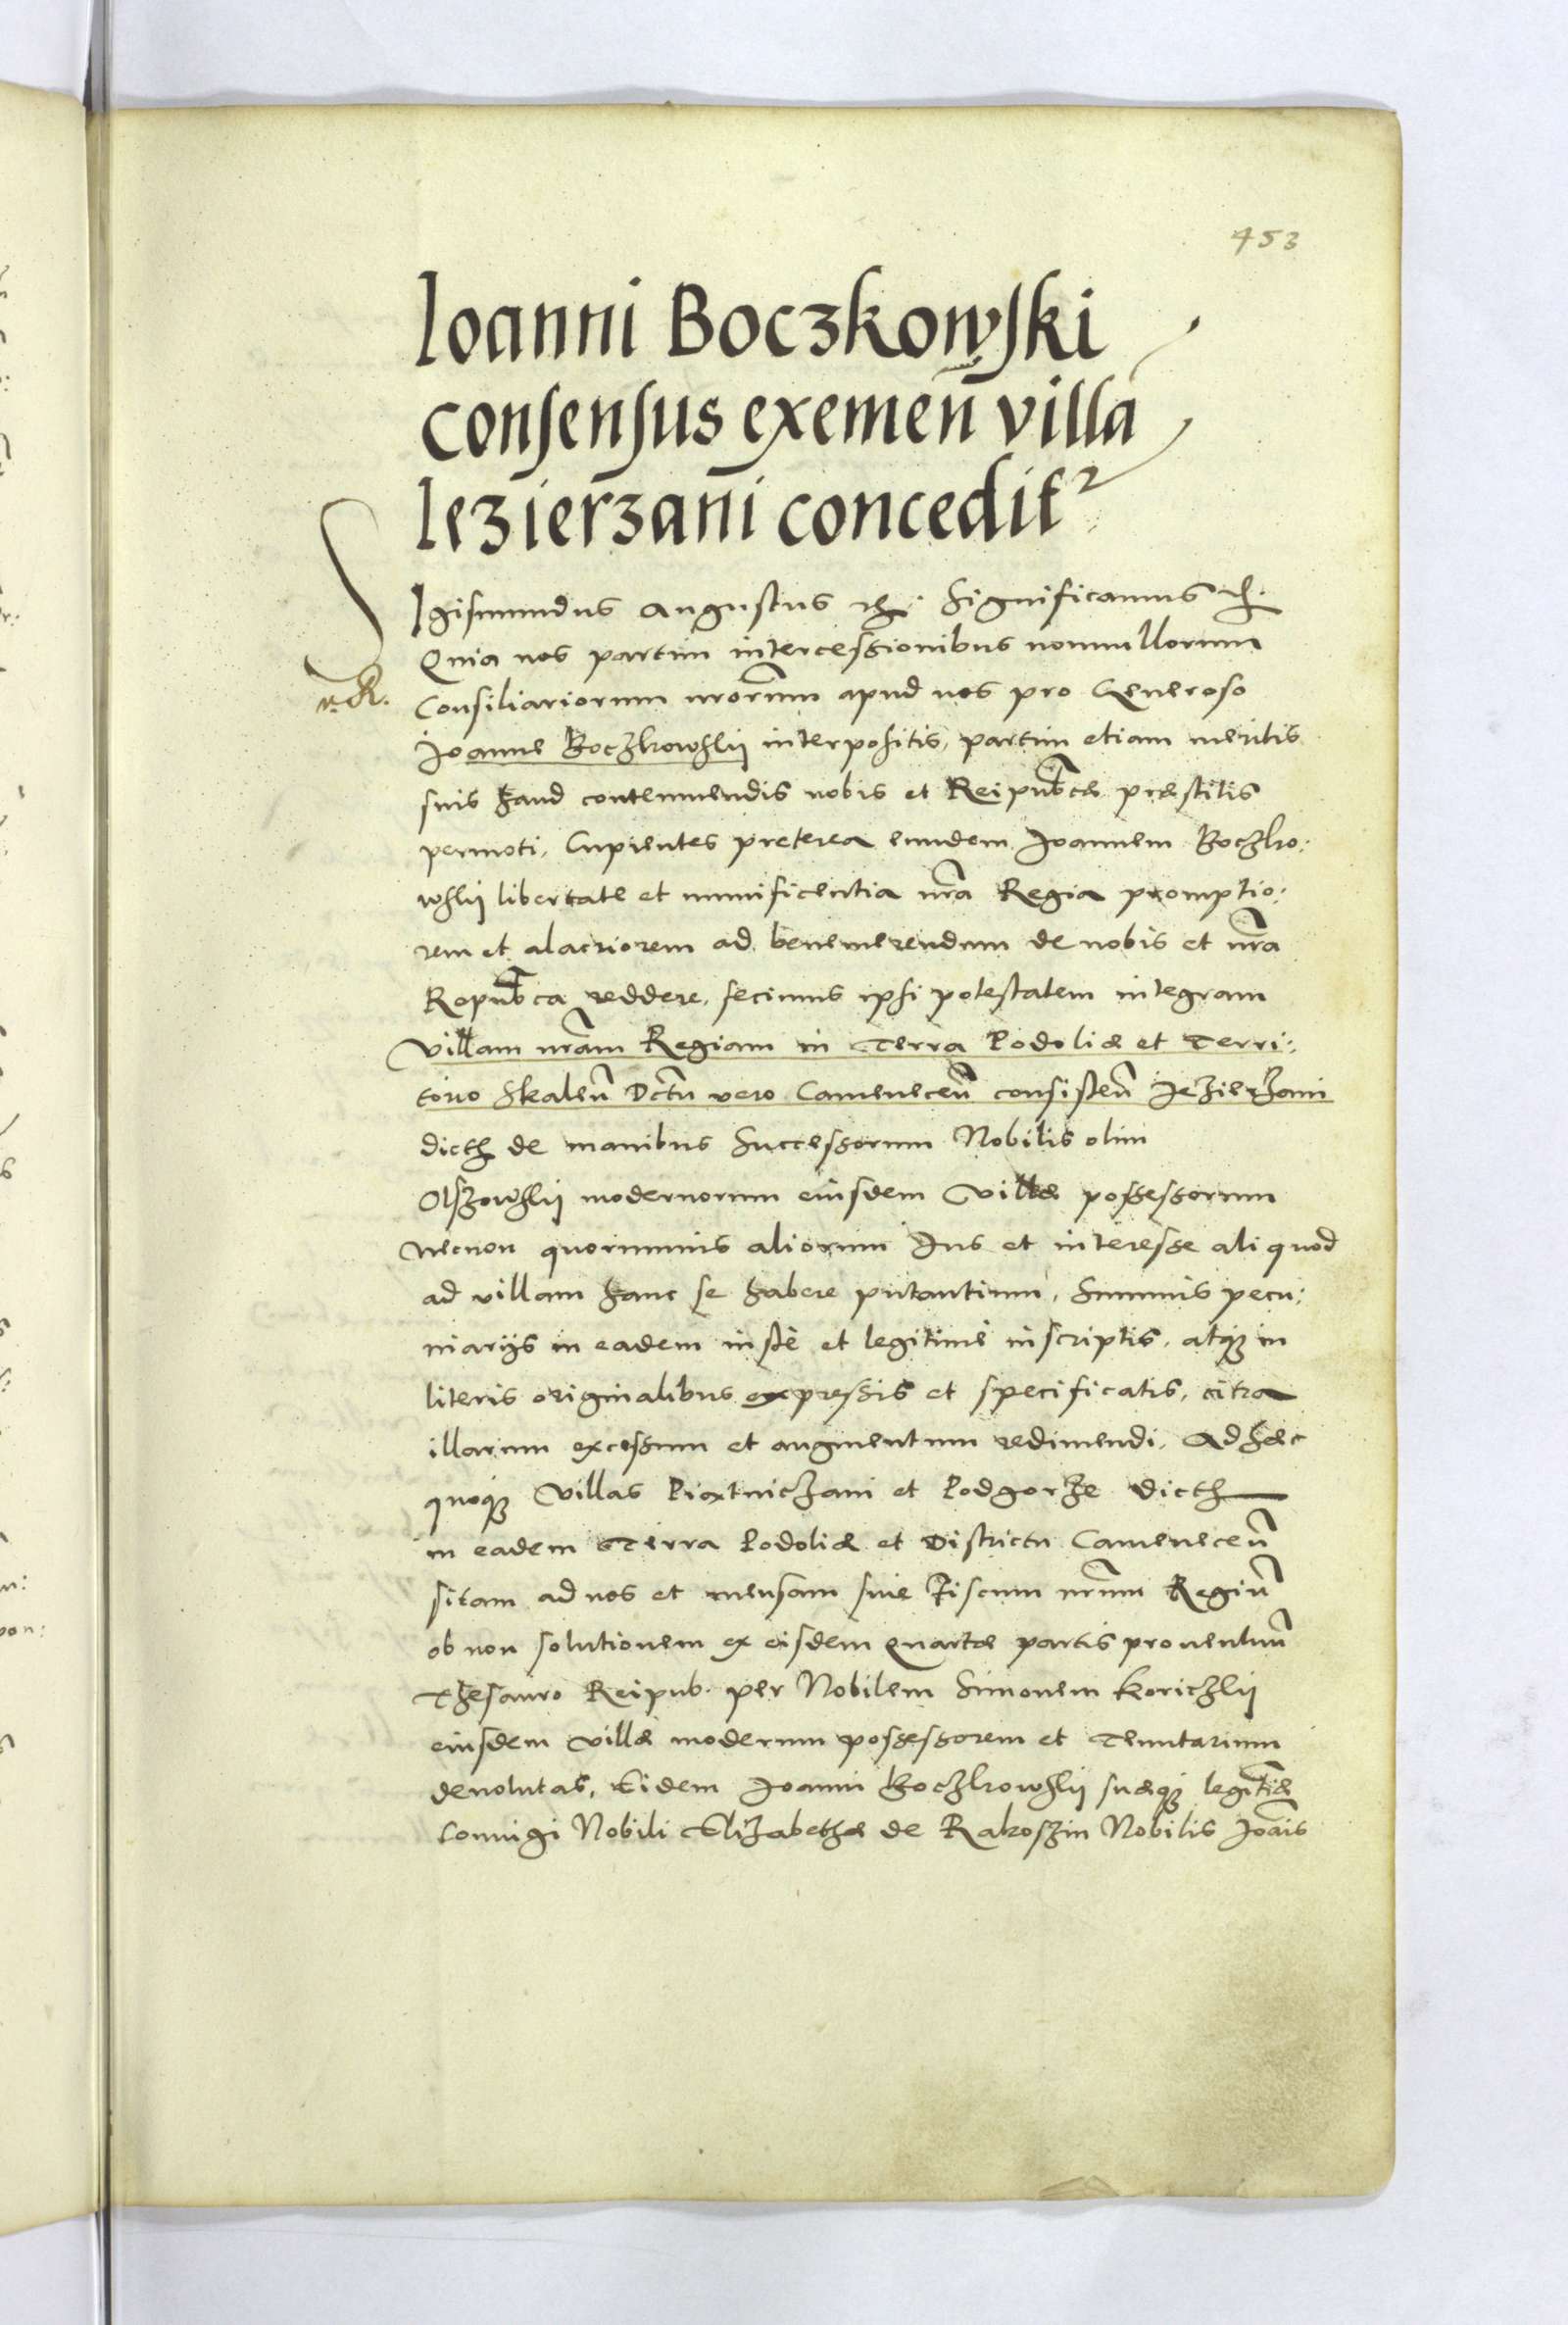 453
Ioanni Boczkowski
consensus exemen̄ villa
Iezierzani concedit²
SIgismundus Augustus etc. Significamus etc.
Quia nos partim intercessionibus nonnullorum
Consiliariorum nrōrum apud nos pro Generoso
Joanne Boczkowskÿ interpositis, partim etiam meritis
suis haud contemnendis nobis et Reipub̄cæ præstitis
permoti. Cupientes preterea eundem Joannem Boczko:
wskÿ libertate et munificentia nr̄a Regia promptio:
rem et alacriorem ad benemerendum de nobis et nr̄a
Repub̄ca reddere, fecimus ipsi potestatem integram
Villam nr̄am Regiam in Terra Podoliæ et Terri:
torio Skalen̄ Dc̄tu vero Camenecen̄ consisten̄ Jezierzani
dictħ de manibus Successorum Nobilis olim
Olszowskÿ modernorum eiusdem Villæ possessorum
necnon quorumuis aliorum Jus et interesse aliquod
ad villam hanc se habere putantium, Summis pecu:
niarijs in eadem iustè et legitimè inscriptis, atqꝫ in
literis originalibus expressis et specificatis, citra
illarum excessum et augmentum redimendi. Ad hæc
quoqꝫ Villas Piatniczani et Podgorze dictħ
in eadem Terra Podoliæ et Districtu Camenecen̄
sitam ad nos et mensam siue Fiscum nr̄um Regiū
ob non solutionem ex eisdem quartæ partis prouentuū
Thesauro Reipub. per Nobilem Simonem Koriczkÿ
eiusdem villæ modernum possessorem et Tenutarium
deuolutas, Eidem Joanni Boczkowskÿ suæqꝫ legit̄iæ
Coniugi Nobili Elizabethæ de Rakoszin Nobilis Joāis